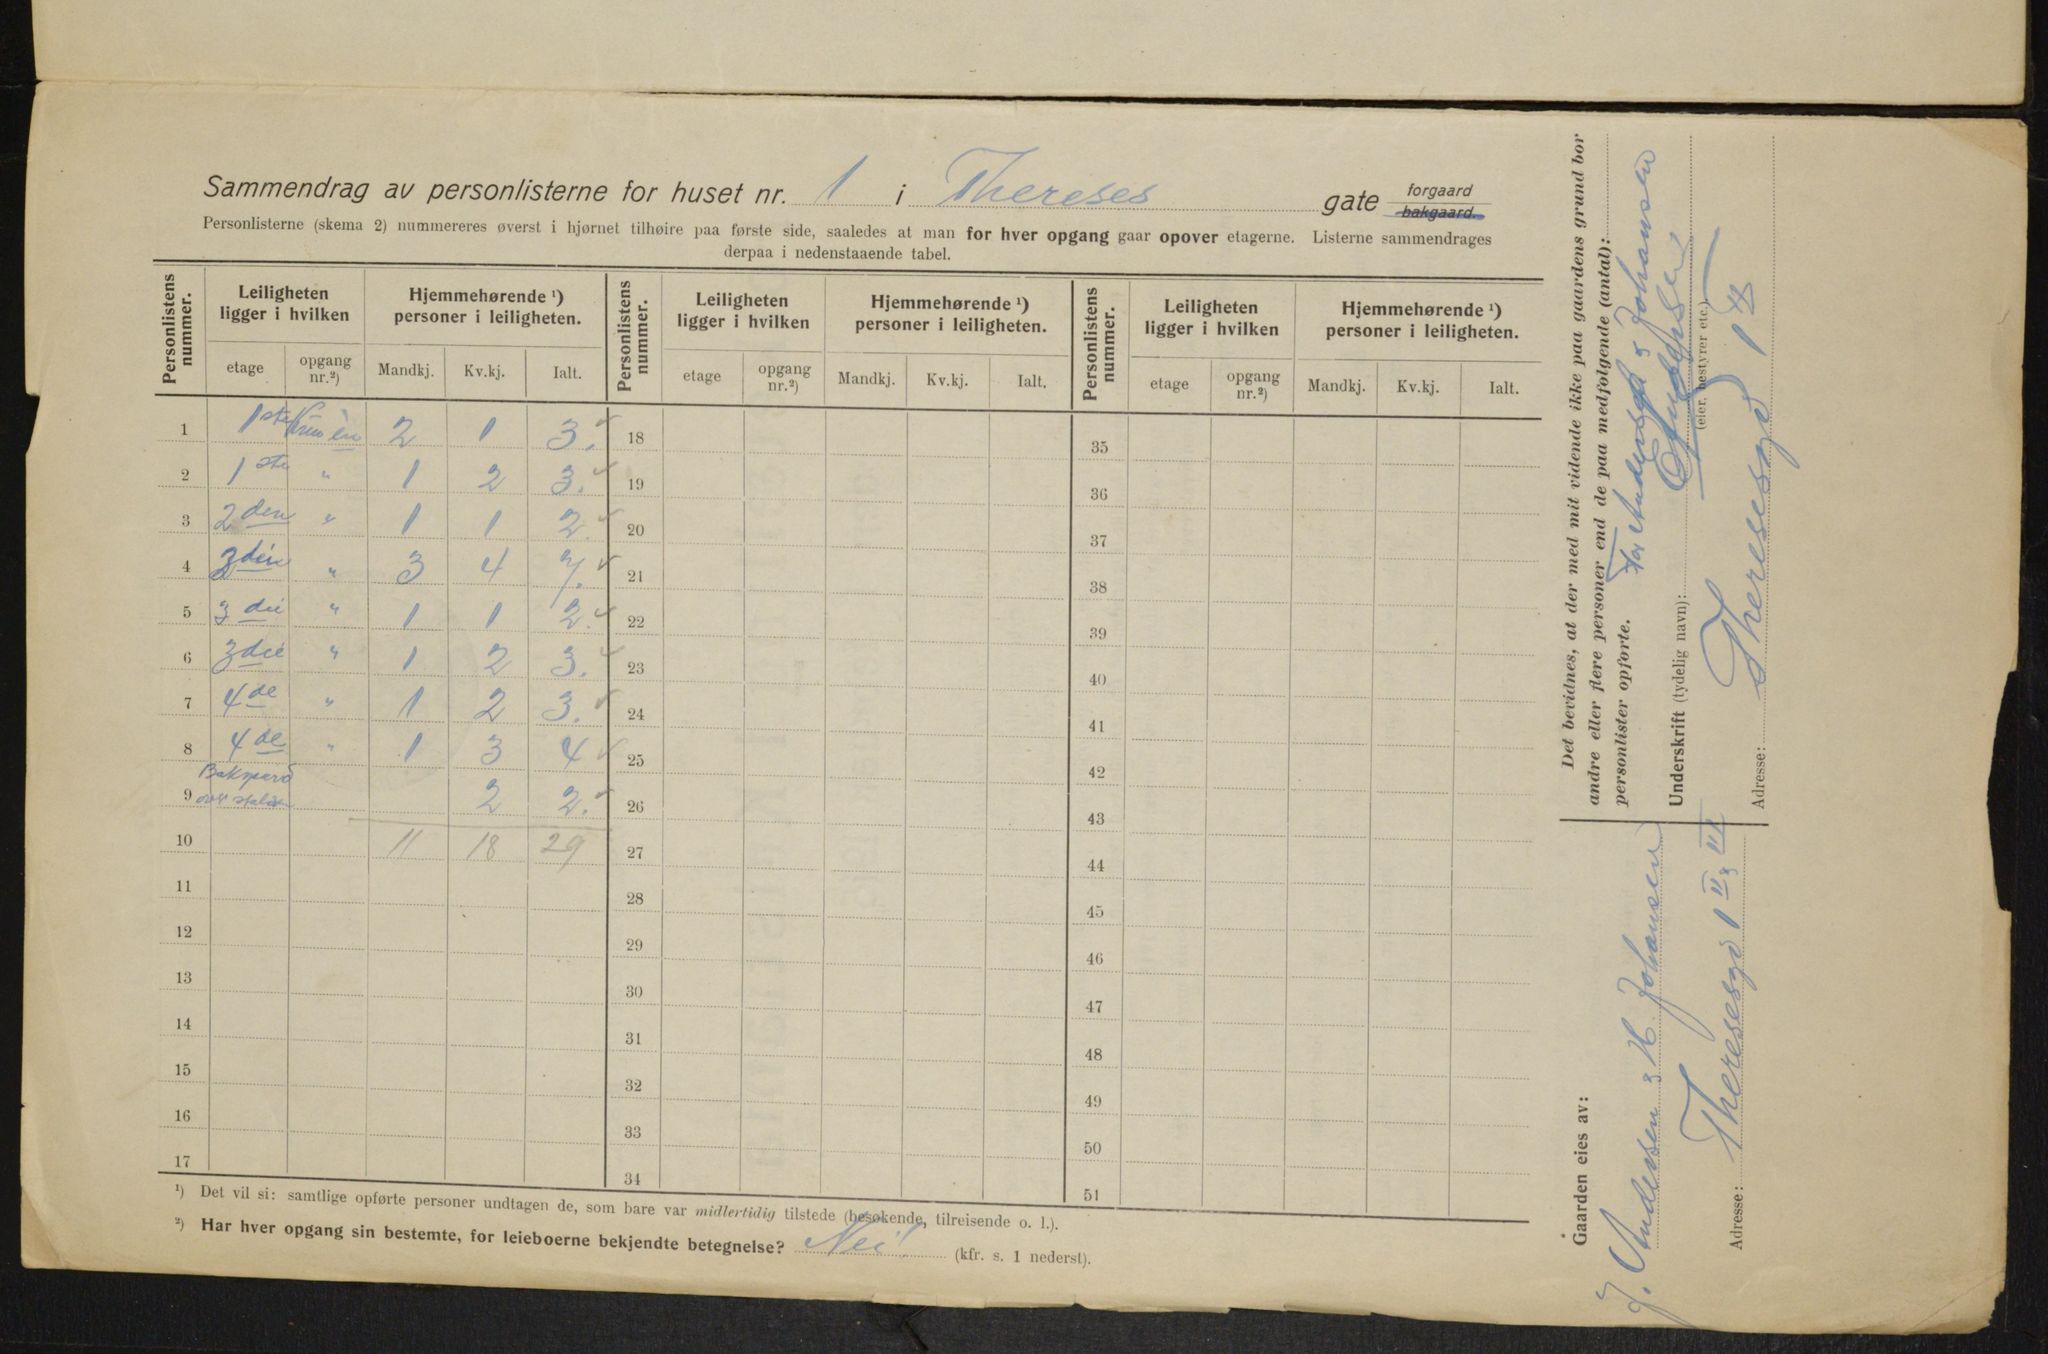 Sammendrag av personlisterne for huset nr. 1 i Thereses gate forgaard bakgaard.
Personlisterne (skema 2) nummereres øverst i hjørnet tilhøire paa første side, saaledes at man for hver opgang gaar opover etagerne. Listerne sammendrages
derpaa i nedenstaaende tabel.
Personlistens nummer. Leiligheten ligger i hvilken Hjemmehørende ¹) personer i leiligheten. Personlistens nummer. Leiligheten ligger i hvilken Hjemmehørende ¹) personer i leiligheten. Personlistens nummer. Leiligheten ligger i hvilken Hjemmehørende ¹) personer i leiligheten.
etage opgang nr.²) Mandkj. Kv.kj. Ialt. etage opgang nr.²) Mandkj. Kv.kj. Ialt. etage opgang nr.²) Mandkj. Kv.kj. Ialt.
1 1ste Kun èn 2 1 3. 18 35
2 1ste " 1 2 3. 19 36
3 2den " 1 1 2. 20 37
4 " 3 4 7. 21 38
5 3die " 1 1 2. 22 39
6 3die " 1 2 3. 23 40
7 4de " 1 2 3. 24 41
8 4de " 1 3 4 25 42
9 Bakgaard over stalden 2 2. 26 43
10 11 18 29 27 44
11 28 45
12 29 46
13 30 47
14 31 48
15 32 49
16 33 50
17 34 51
¹) Det vil si: samtlige opførte personer undtagen de, som bare var midlertidig tilstede (besøkende, tilreisende o. l.).
²) Har hver opgang sin bestemte, for leieboerne bekjendte betegnelse? Nei! (kfr. s. 1 nederst).
Det bevidnes, at der med mit vidende ikke paa gaardens grund bor
andre eller flere personer end de paa medfølgende (antal):
personlister opførte. For Andersen & Johansen
Underskrift (tydelig navn):
(eier, bestyrer etc.)
Adresse: Theresesgd 1
Gaarden eies av:
J. Andersen & H Johansen
Adresse: Theresesgd 1 II & III